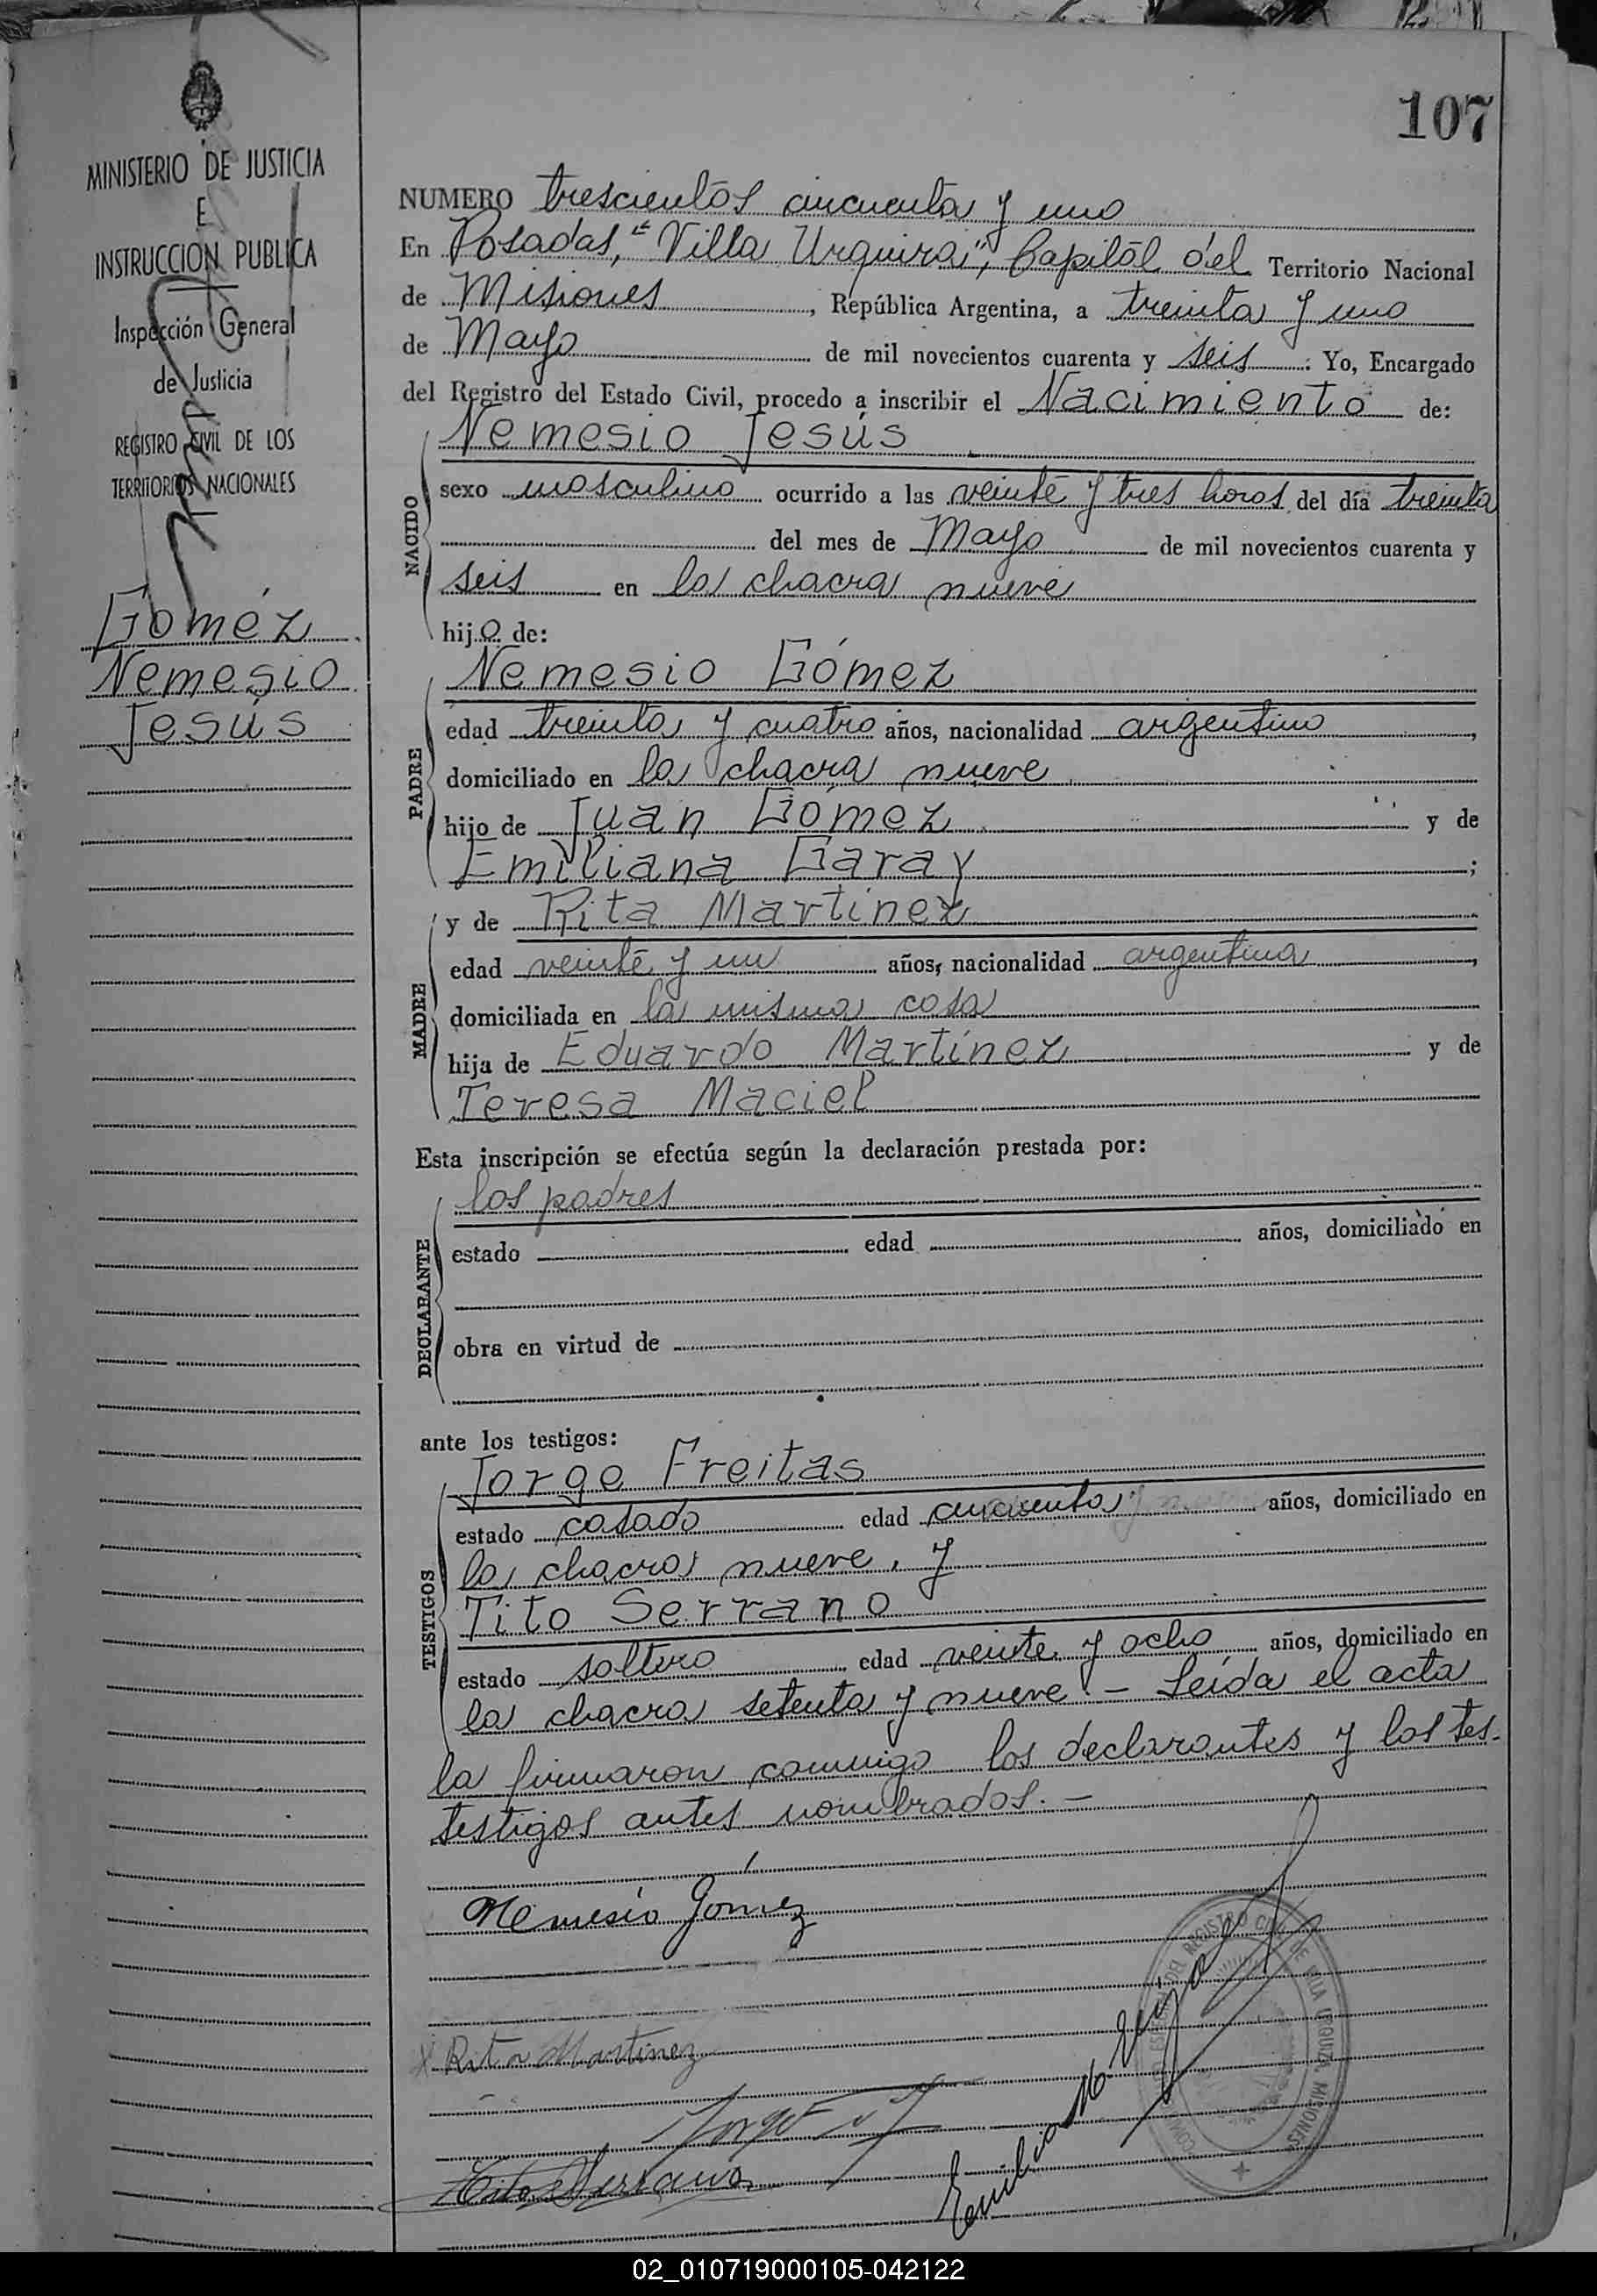 107
MINISTERIO DE JUSTICIA
E
INSTRUCCION PUBLICA
Inspección General
de Justicia
REGISTRO CIVIL DE LOS
TERRITORIOS NACIONALES
Goméz
Nemesio
Jesús
NUMERO trescientos cincuenta y uno
En Posadas, "Villa Urquiza", Capital del Territorio Nacional
de Misiones, República Argentina, a treinta y uno
de Mayo de mil novecientos cuarenta y seis: Yo, Encargado
del Registro del Estado Civil, procedo a inscribir el Nacimiento de:
Nemesio Jesús
NACIDO
sexo masculino ocurrido a las veinte y tres horas del día treinta
del mes de Mayo de mil novecientos cuarenta y
seis en la chacra nueve
hijo de:
Nemesio Gómez
PADRE
edad treinta y cuatro años, nacionalidad argentino,
domiciliado en la chacra nueve
hijo de Juan Gómez y de
Emiliana Garay;
y de Rita Martínez
MADRE
edad veinte y un años, nacionalidad argentina,
domiciliada en la misma casa
hija de Eduardo Martínez y de
Teresa Maciel
Esta inscripción se efectúa según la declaración prestada por:
los padres
DECLARANTE
estado edad años, domiciliado en
obra en virtud de
ante los testigos:
Jorge Freitas
TESTIGOS
estado casado edad cincuenta años, domiciliado en
la chacra nueve, y
Tito Serrano
estado soltero edad veinte y ocho años, domiciliado en
la chacra setenta y nueve.- Leída el acta
la firmaron conmigo los declarantes y los tes-
testigos antes nombrados.-
Nemesio Gómez
x Rita Martinez
Jorge
Tito Serrano
Emiliano M.
REGISTRO CIVIL DE VILLA URQUIZA MISIONES
02_010719000105-042122